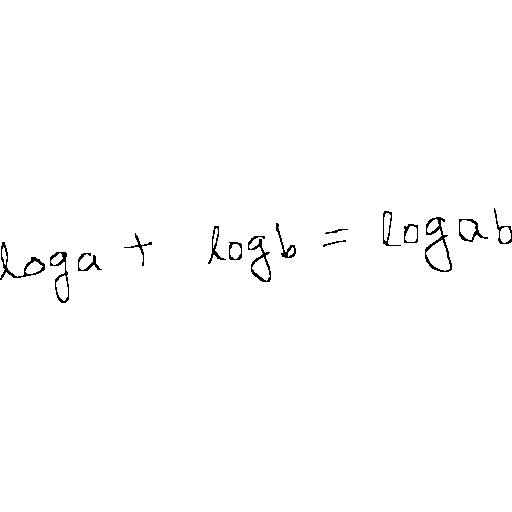 log a + log b = log ab